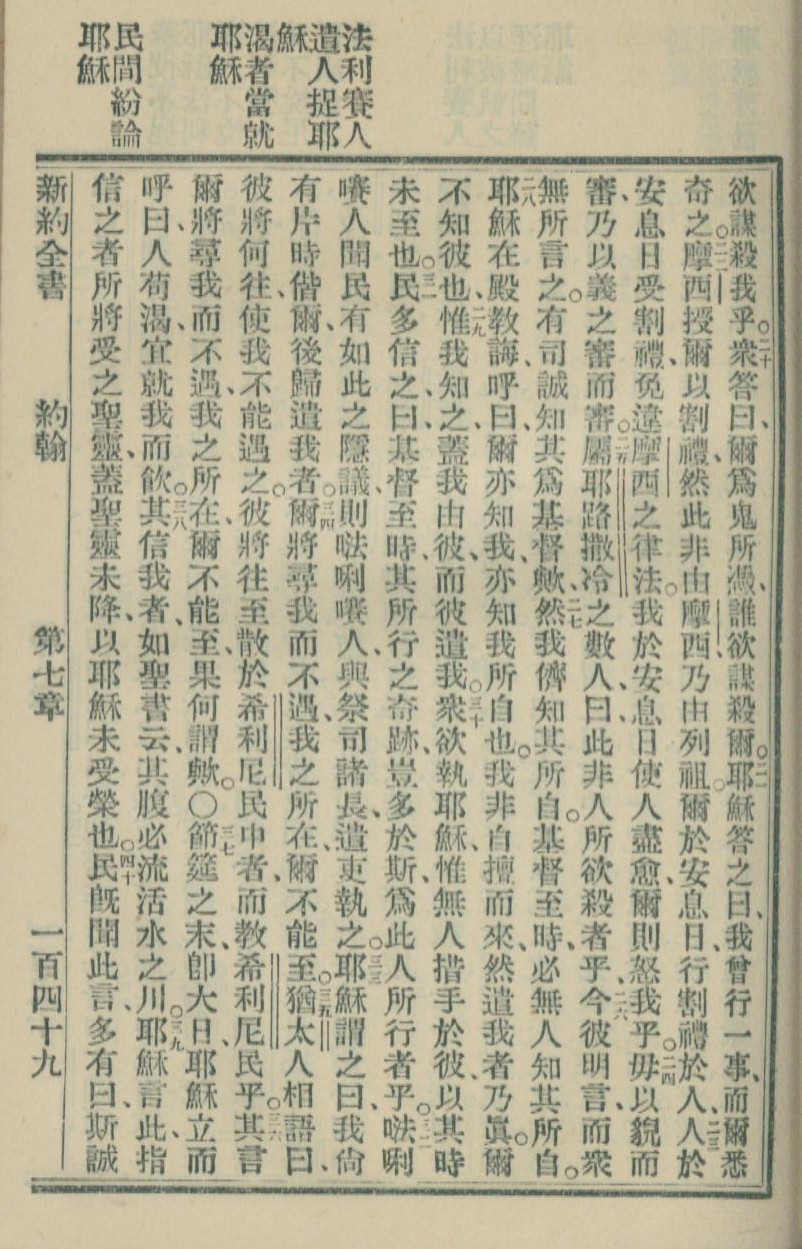 法利賽人
遣人捉耶
穌
渴者當就
耶穌
民間紛論
耶穌
欲謀殺我乎。二十衆答曰、爾爲鬼所憑、誰欲謀殺爾。二一耶穌答之曰、我曾行一事、而爾悉
奇之。二二摩西授爾以割禮、然此非由摩西、乃由列祖、爾於安息日、行割禮於人、二三人於
安息日受割禮、免違摩西之律法。我於安息日使人盡愈、爾則怒我乎。二四毋以貌而
審、乃以義之審而審。二五屬耶路撒冷之數人曰、此非人所欲殺者乎、二六今彼明言、而衆
無所言之。有司誠知其爲基督歟、二七然我儕知其所自。基督至時、必無人知其所自。
二八耶穌在殿教誨、呼曰、爾亦知我、亦知我所自也。我非自擅而來、然遣我者乃眞。爾
不知彼也、二九惟我知之、蓋我由彼、而彼遣我。三十衆欲執耶穌、惟無人措手於彼、以其時
未至也。三一民多信之、曰、基督至時、其所行之奇跡、豈多於斯爲此人所行者乎。三二㗲唎
㘔人聞民有如此之隱議、則㗲唎㘔人、與祭司諸長、遣吏執之。三三耶穌謂之曰、我尙
有片時偕爾、後歸遣我者。三四爾將尋我而不遇、我之所在、爾不能至。三五猶太人相語曰、
彼將何往、使我不能遇之。彼將往至散於希利尼民中者、而教希利尼民乎。三六其言
爾將尋我而不遇、我之所在、爾不能至、果何謂歟。〇三七節筵之末、卽大日、耶穌立而
呼曰、人苟渴、宜就我而飮。三八其信我者、如聖書云、其腹必流活水之川。三九耶穌言此、指
信之者所將受之聖靈、蓋聖靈未降、以耶穌未受榮也。四十民旣聞此言、多有曰、斯誠
新約全書　約翰　第七章　一百四十九